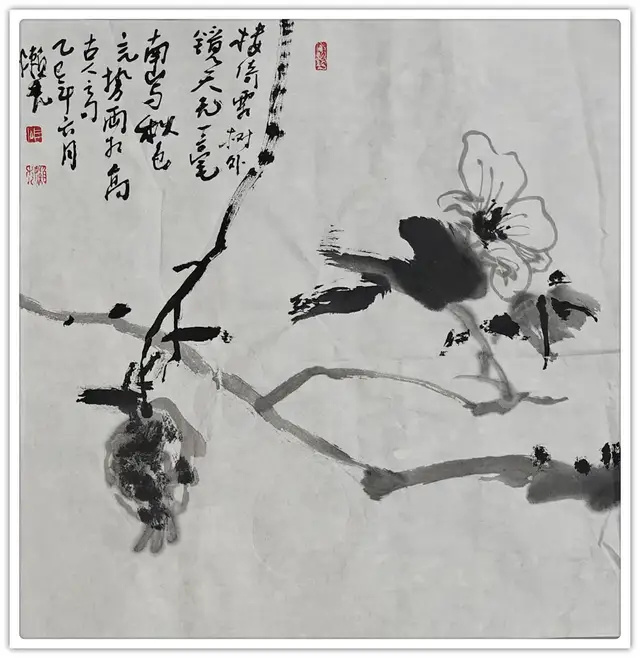 楼倚霜树外
镜天无一毫
南山与秋色
气势两相高
古人句
乙巳年六月